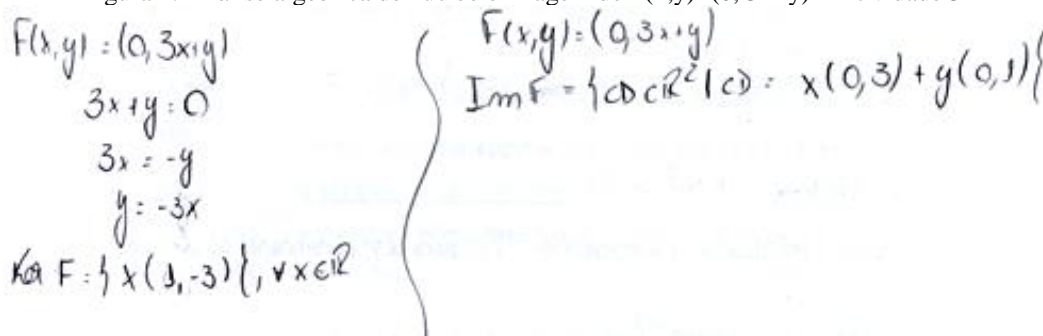 F(x,y)=(0,3x+y)
3x+y=0
3x=-y
y=-3x
Ker F={x(1,-3)}, ∀x∈ℝ
F(x,y)=(0,3x+y)
Im F={ω∈ℝ²|ω= x(0,3)+y(0,1)}